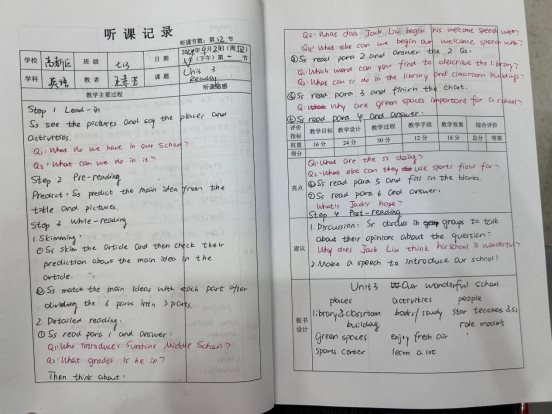 听课记录
听课节数:第12节
学校 高新区 班级 七13 日期 2024年9月29日(周日)
上午(下午)第一节
学科 英语 教者 课题 Unit 3
Reading
教学主要过程 听课随感
Step 1 Lead-in
Ss see the pictures and say the places and
activities.
Q1: What do we have in our school?
Q2: What can we do in it?
Step 2 Pre-reading
Predict: Ss predict the main idea from the
title and pictures.
Step 3 While-reading
1. Skimming:
① Ss skim the article and then check their
prediction about the main idea in the
article.
② Ss match the main ideas with each part after
dividing the 6 paras into 3 parts.
2. Detailed reading:
① Ss read para 1 and answer:
Q1: Who introduces Sunshine Middle School?
Q2: What grade is he in?
Then think about:
Q3: What does Jack Liu begin his welcome speech with?
Q4: What else can we begin our welcome speech with?
② Ss read para 2 and answer the 2 Qs:
Q1: Which word can you find to describe the library?
Q2: What can Ss do in the library and classroom buildings?
③ Ss read para 3 and finish the chart.
Q: Why are green spaces important for a school?
④ Ss read para 4 and answer:
评价指标 教学目标 教学设计 教学过程 教学手段 教学效果 综合评价
权重 16 24 30 12 18 总分 等第
得分
亮点
Q1: What are the Ss doing?
Q2: What else can they use sports field for?
⑤ Ss read para 5 and fill in the blanks.
⑥ Ss read para 6 and answer.
What's Jack's hope?
Step 4 Post-reading
建议
1. Discussion: Ss discuss in groups to talk
about their opinions about the question:
Why does Jack Liu think his school is wonderful?
2. Make a speech to introduce our school!
板书设计
Unit 3 Our wonderful school
places activities people
library & classroom building books / study star teachers & Ss
role models
Green spaces enjoy fresh air
Sports center learn a lot